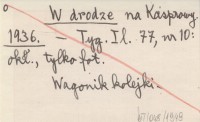 o
W drodze na Kasprowy.
1936. — Tyg. Il. 77, nr 10:
okł., tylko fot.
Wagonik kolejki.